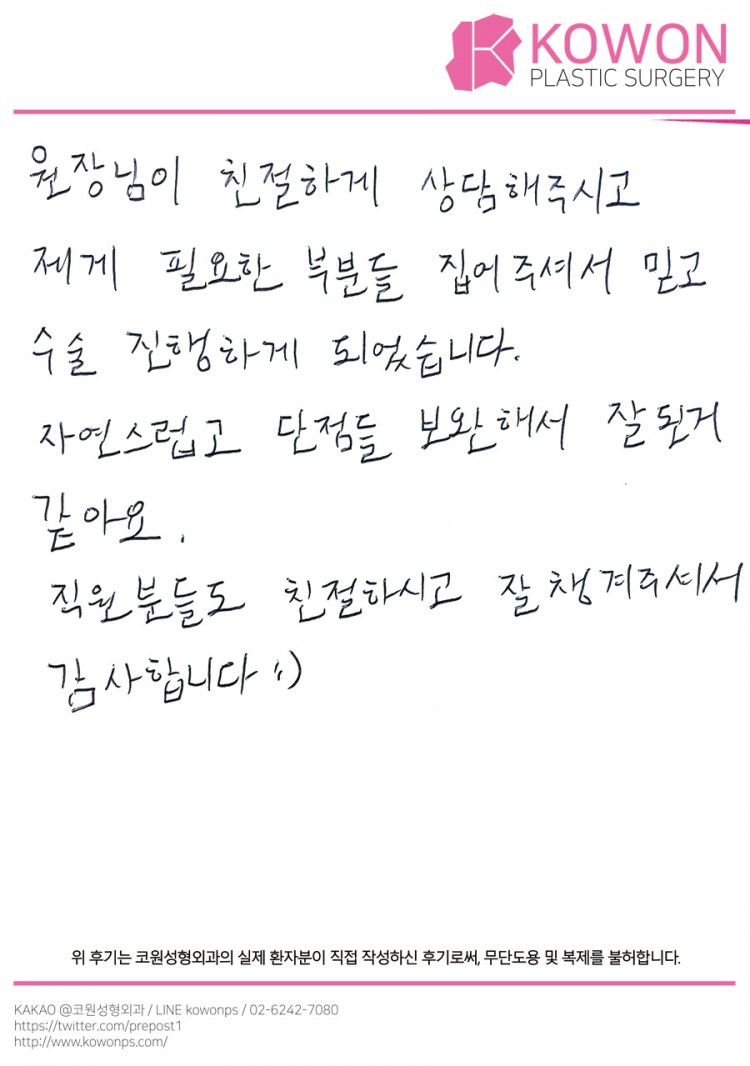 KOWON
PLASTIC SURGERY
원장님이 친절하게 상담해주시고
제게 필요한 부분들 집어주셔서 믿고
수술 진행하게 되었습니다.
자연스럽고 단점들 보완해서 잘된거
같아요.
직원분들도 친절하시고 잘챙겨주셔서
감사합니다 :)
위 후기는 코원성형외과의 실제 환자분이 직접 작성하신 후기로써, 무단도용 및 복제를 불허합니다.
KAKAO @코원성형외과 / LINE kowonps / 02-6242-7080
https://twitter.com/prepost1
http://www.kowonps.com/